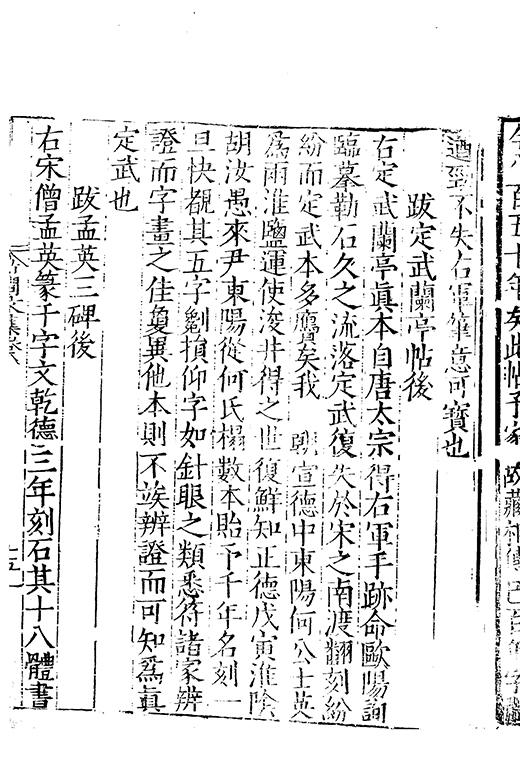 今凡百五十年矣此帖予家故藏
遒勁不失右軍筆意可寶也
跋定武蘭亭帖後
右定武蘭亭眞本自唐太宗得右軍手跡命歐陽詢
臨摹勒石久之流落定武復失於宋之南渡翻刻紛
紛而定武本多贋矣我 朝宣德中東陽何公士英
爲兩淮鹽運使浚井得之世復鮮知正德戊寅淮陰
胡汝愚來尹東陽從何氏搨數本貽予千年名刻一
旦快覩其五字劖損仰字如針眼之類悉符諸家辨
證而字畫之佳敻異他本則不竢辨證而可知爲眞
定武也
跋孟英三碑後
右宋僧孟英篆千字文乾德三年刻石其十八體書